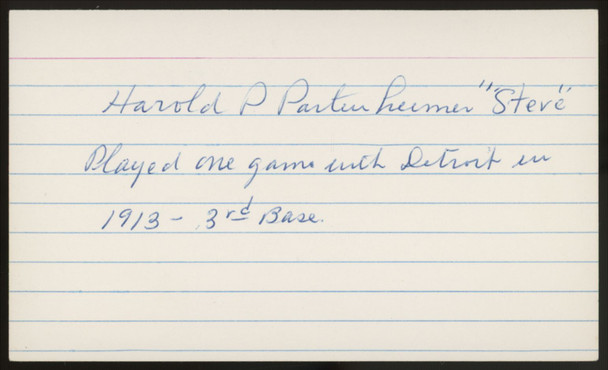 Harold P Partenheimer "Steve"
Played one game with Detroit in
1913 - 3rd Base.